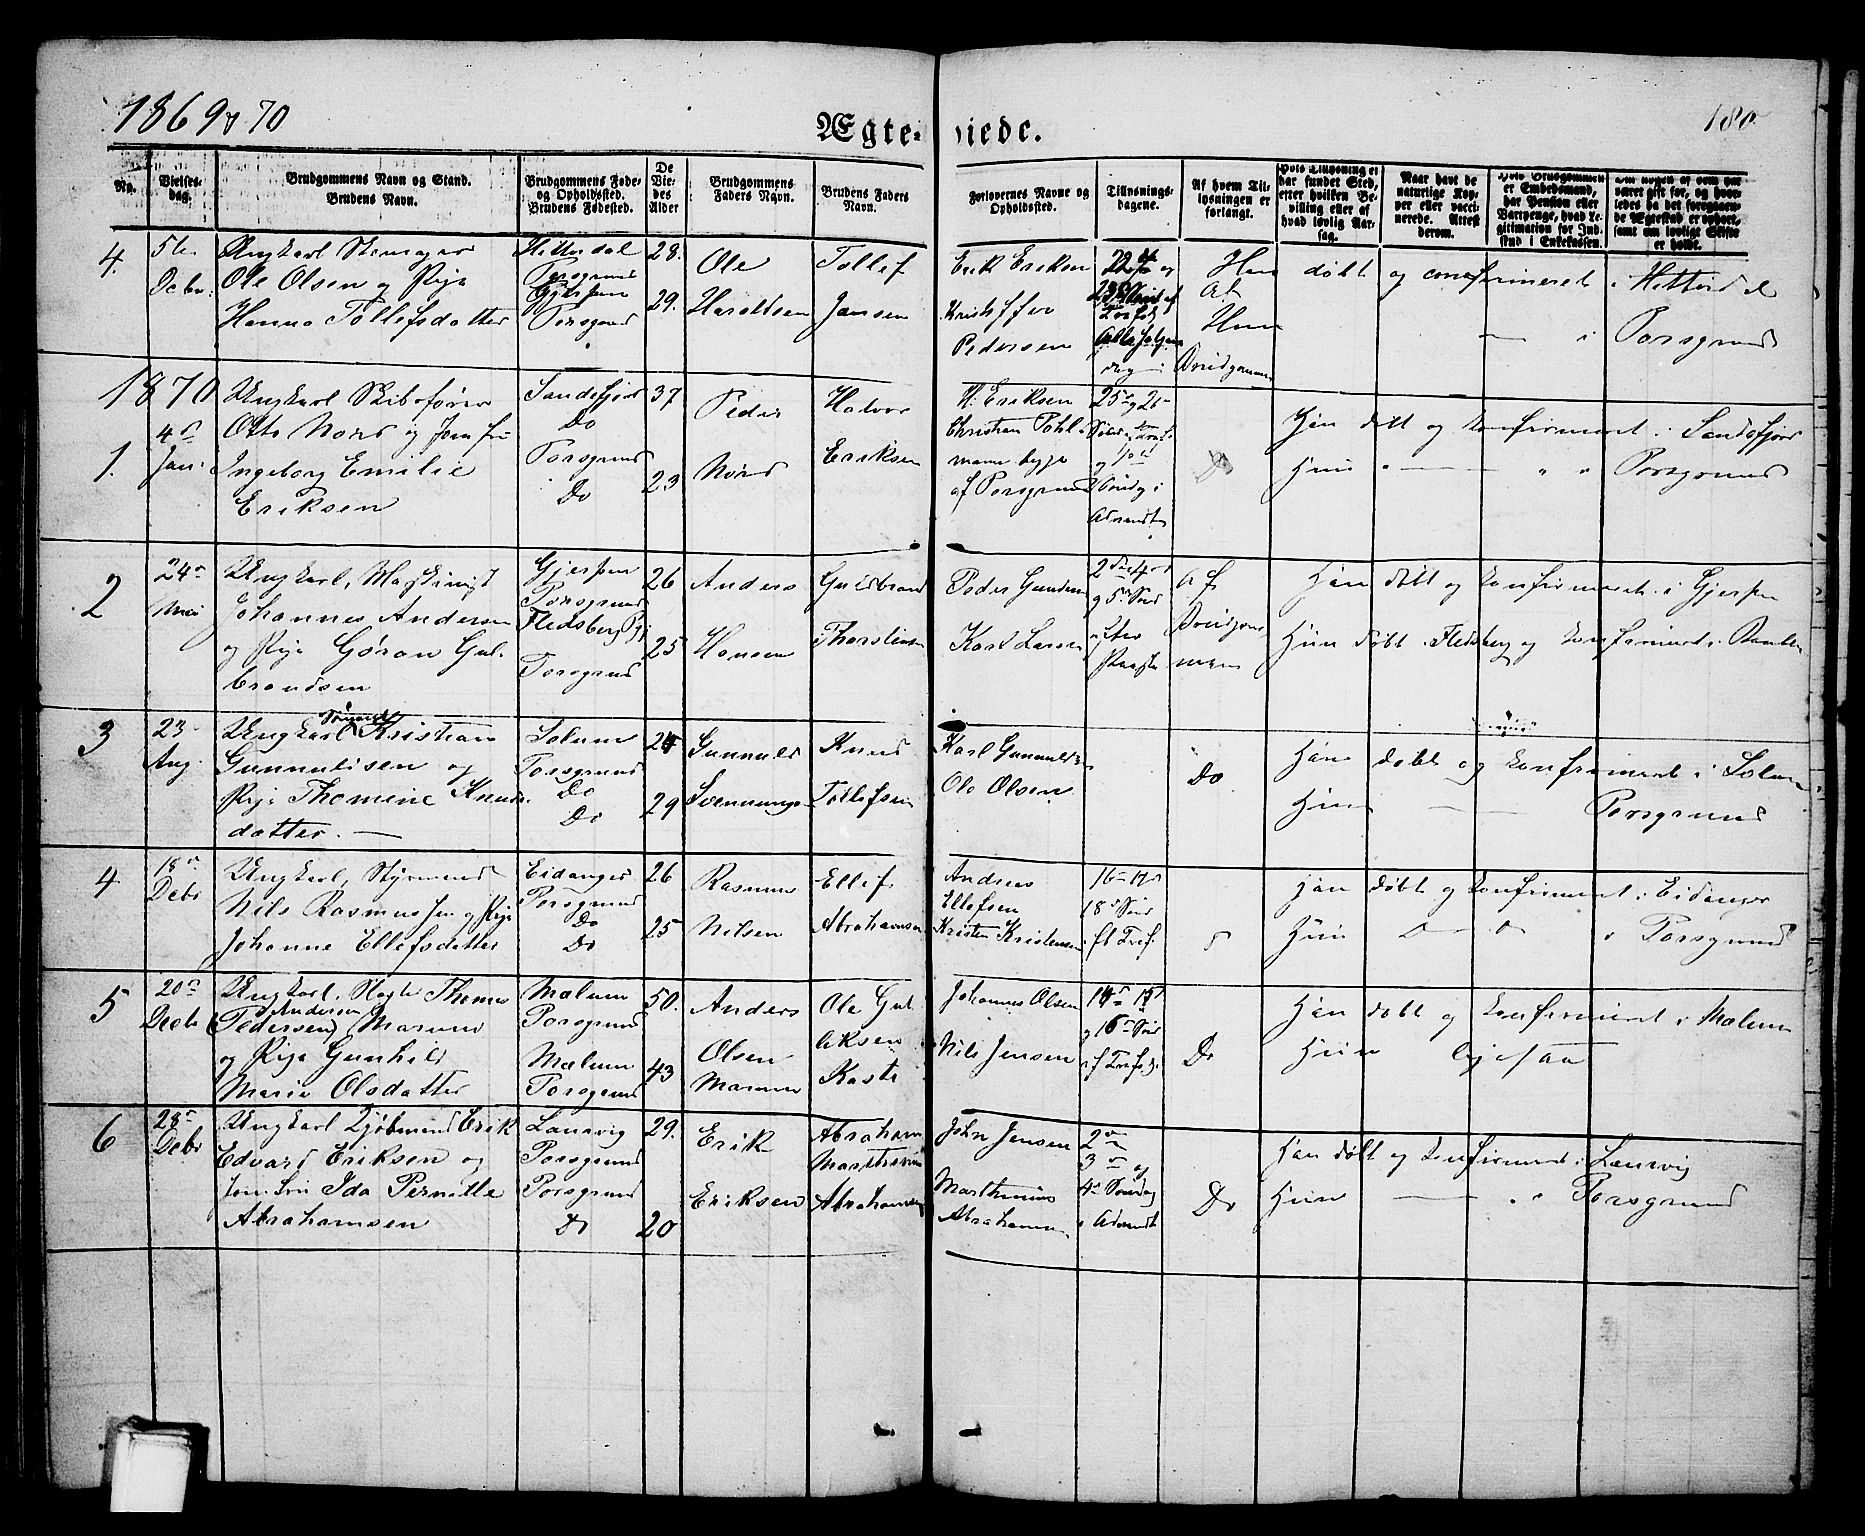 1869 & 70
180
Ægte-
viede.
No.
Vielses-
dag.
Brudgommens Navn og Stand.
Brudens Navn.
Brudgommens Føde-
og Opholdssted.
Brudens Fødested.
De
Vie-
des
Alder
Brudgommens
Faders Navn.
Brudens Faders
Navn.
Forlovernes Navne og
Opholdssted.
Tillysnings-
dagene.
Af hvem Til-
lysningen er
forlangt.
Hvis Tillysning ei
har fundet Sted,
efter hvilken Be-
villing eller af
hvad lovlig Aar-
sag.
Naar havt de
naturlige Kop-
per eller vacci-
nerede. Attest
derom.
Hvis Brudgommen
er Embedsmand,
har Pension eller
Vartpenge, hvad Le-
gitimation for Ind-
skud i Enkekassen.
Om nogen af dem har
været gift før, og hvor-
ledes da det foregaaen-
de Ægteskab er ophørt,
samt om lovligt Skifte
er holdt.
4.
5te
Decbr.
Ungkarl
Ole Olsen og Pige
Hanna Tollefsdatter
Hitterdal
Porsgrund
Gjerpen
Porsgrund
28.
29.
Ole
Haraldsen
Tollef
Jansen
Erik Eriksen
Kristoffer
Pedersen
Han døbt og confirmeret i Hitterdal
Hun — i Porsgrund
Brudgommen
1870
1.
4de
Jan.
Ungkarl Skibsfører
Otto Nord og Jomfru
Ingeborg Emilie
Eriksen
Sandefjord
Do
Porsgrund
Do
37
23
Peder
Nord
Halvor
Eriksen
H. Eriksen
Christian Pohl-
mann begge
af Porsgrund
25 og 26
Søndag
Advendt
Do
Han døbt og konfirmeret i Sandefjord
Hun — — " " Porsgrund
2
24de
Mai
Ungkarl, Maskinist
Johannes Andersen
og Pige Gøran Gul-
brandsen
Gjerpen
Porsgrund
Flesberg Pgj
Porsgrund
26
25
Anders
Hansen
Gulbrand
Thorstensen
Peder Gundersen
Karl Larsen
2den 4de
og 5te Sønd
efter
Paaske
af
Brudgom-
men
Han døbt og konfirmeret i Gjerpen
Hun døbt i Flesberg og konfirmeret i Bamble
3
23
Aug.
Ungkarl Sømand Kristian
Gunnulfsen og
Pige Thomine Knuds-
datter. —
Solum
Porsgrund
Do
Do
24
29
Gunnuld
Svennungs.
Knud
Tollefsen
Karl Gunnuldsen
Ole Olsen
Do
Han døbt og konfirmeret i Solum
Hun — — Porsgrund
4
18de
Decbr
Ungkarl, Styrmand
Nils Rasmussen og Pige
Johanne Ellefsdatter
Eidanger
Porsgrund
Do
Do
26
25
Rasmus
Nilsen
Ellef
Abrahamsen
Andreas
Ellefsen
Kristen Kristensen
16de 17de
18de Sønd
ef. Tref.
Han døbt og konfirmeret i Eidanger
Hun D— D— i Porsgrund
5
20de
Decbr
Ungkarl, Thomas
Andersen
(Pedersen) Marum
og Pige Gunhild
Marie Olsdatter
Mælum
Porsgrund
Mælum
Porsgrund
50.
43
Anders
Olsen
Marum
Ole Gul-
liksen
Kaste
Johannes Olsen
Nils Jensen
14de 15de
og 16de Sønd
ef Trefol.
Do
Han døbt og konfirmeret i Mælum
Hun ligesaa
6
28de
Decbr
Ungkarl Sjømand Erik
Edvard Eriksen og
Jomfru Ida Pernille
Abrahamsen
Laurvig
Porsgrund
Porsgrund
Do
29.
20
Erik
Eriksen
Abraham
Marthinius
Abrahamsen
John Jensen
Marthinius
Abrahamsen
2den
3die og
4de Søndag
i Advendt
Do
Han døbt og konfirmeret i Laurvig
Hun — — " " Porsgrund